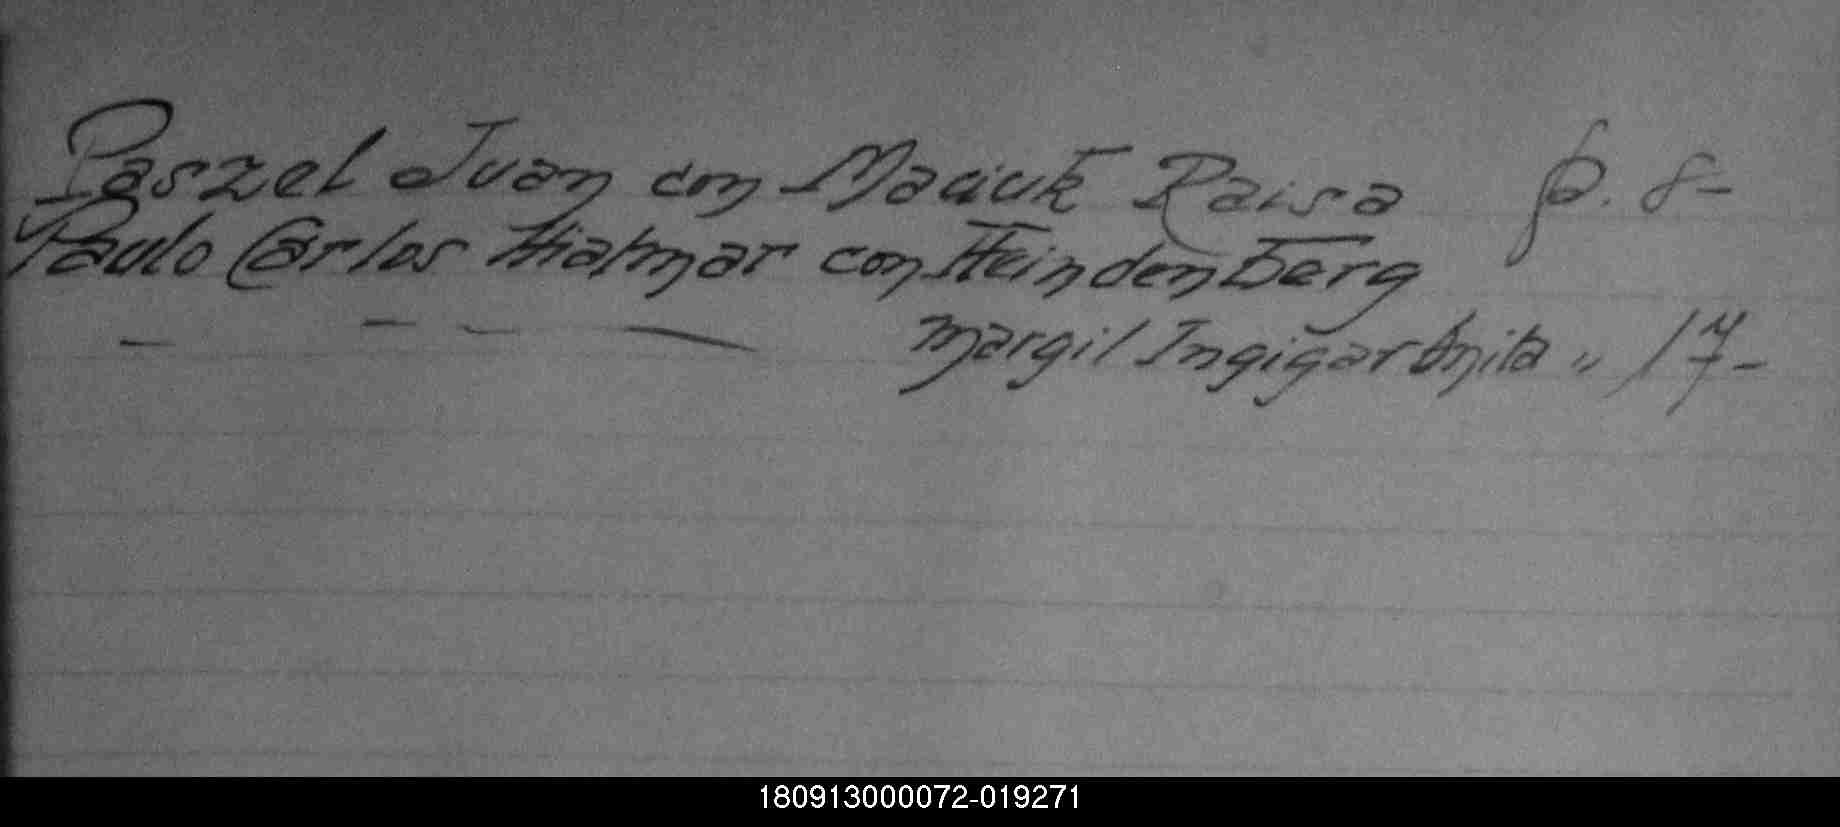 Paszel Juan con Maciuk Raisa p. 8-
Paulo Carlos Hialmar con Heindenberg
— — — — Margil Ingigar Anita " 17-
180913000072-019271